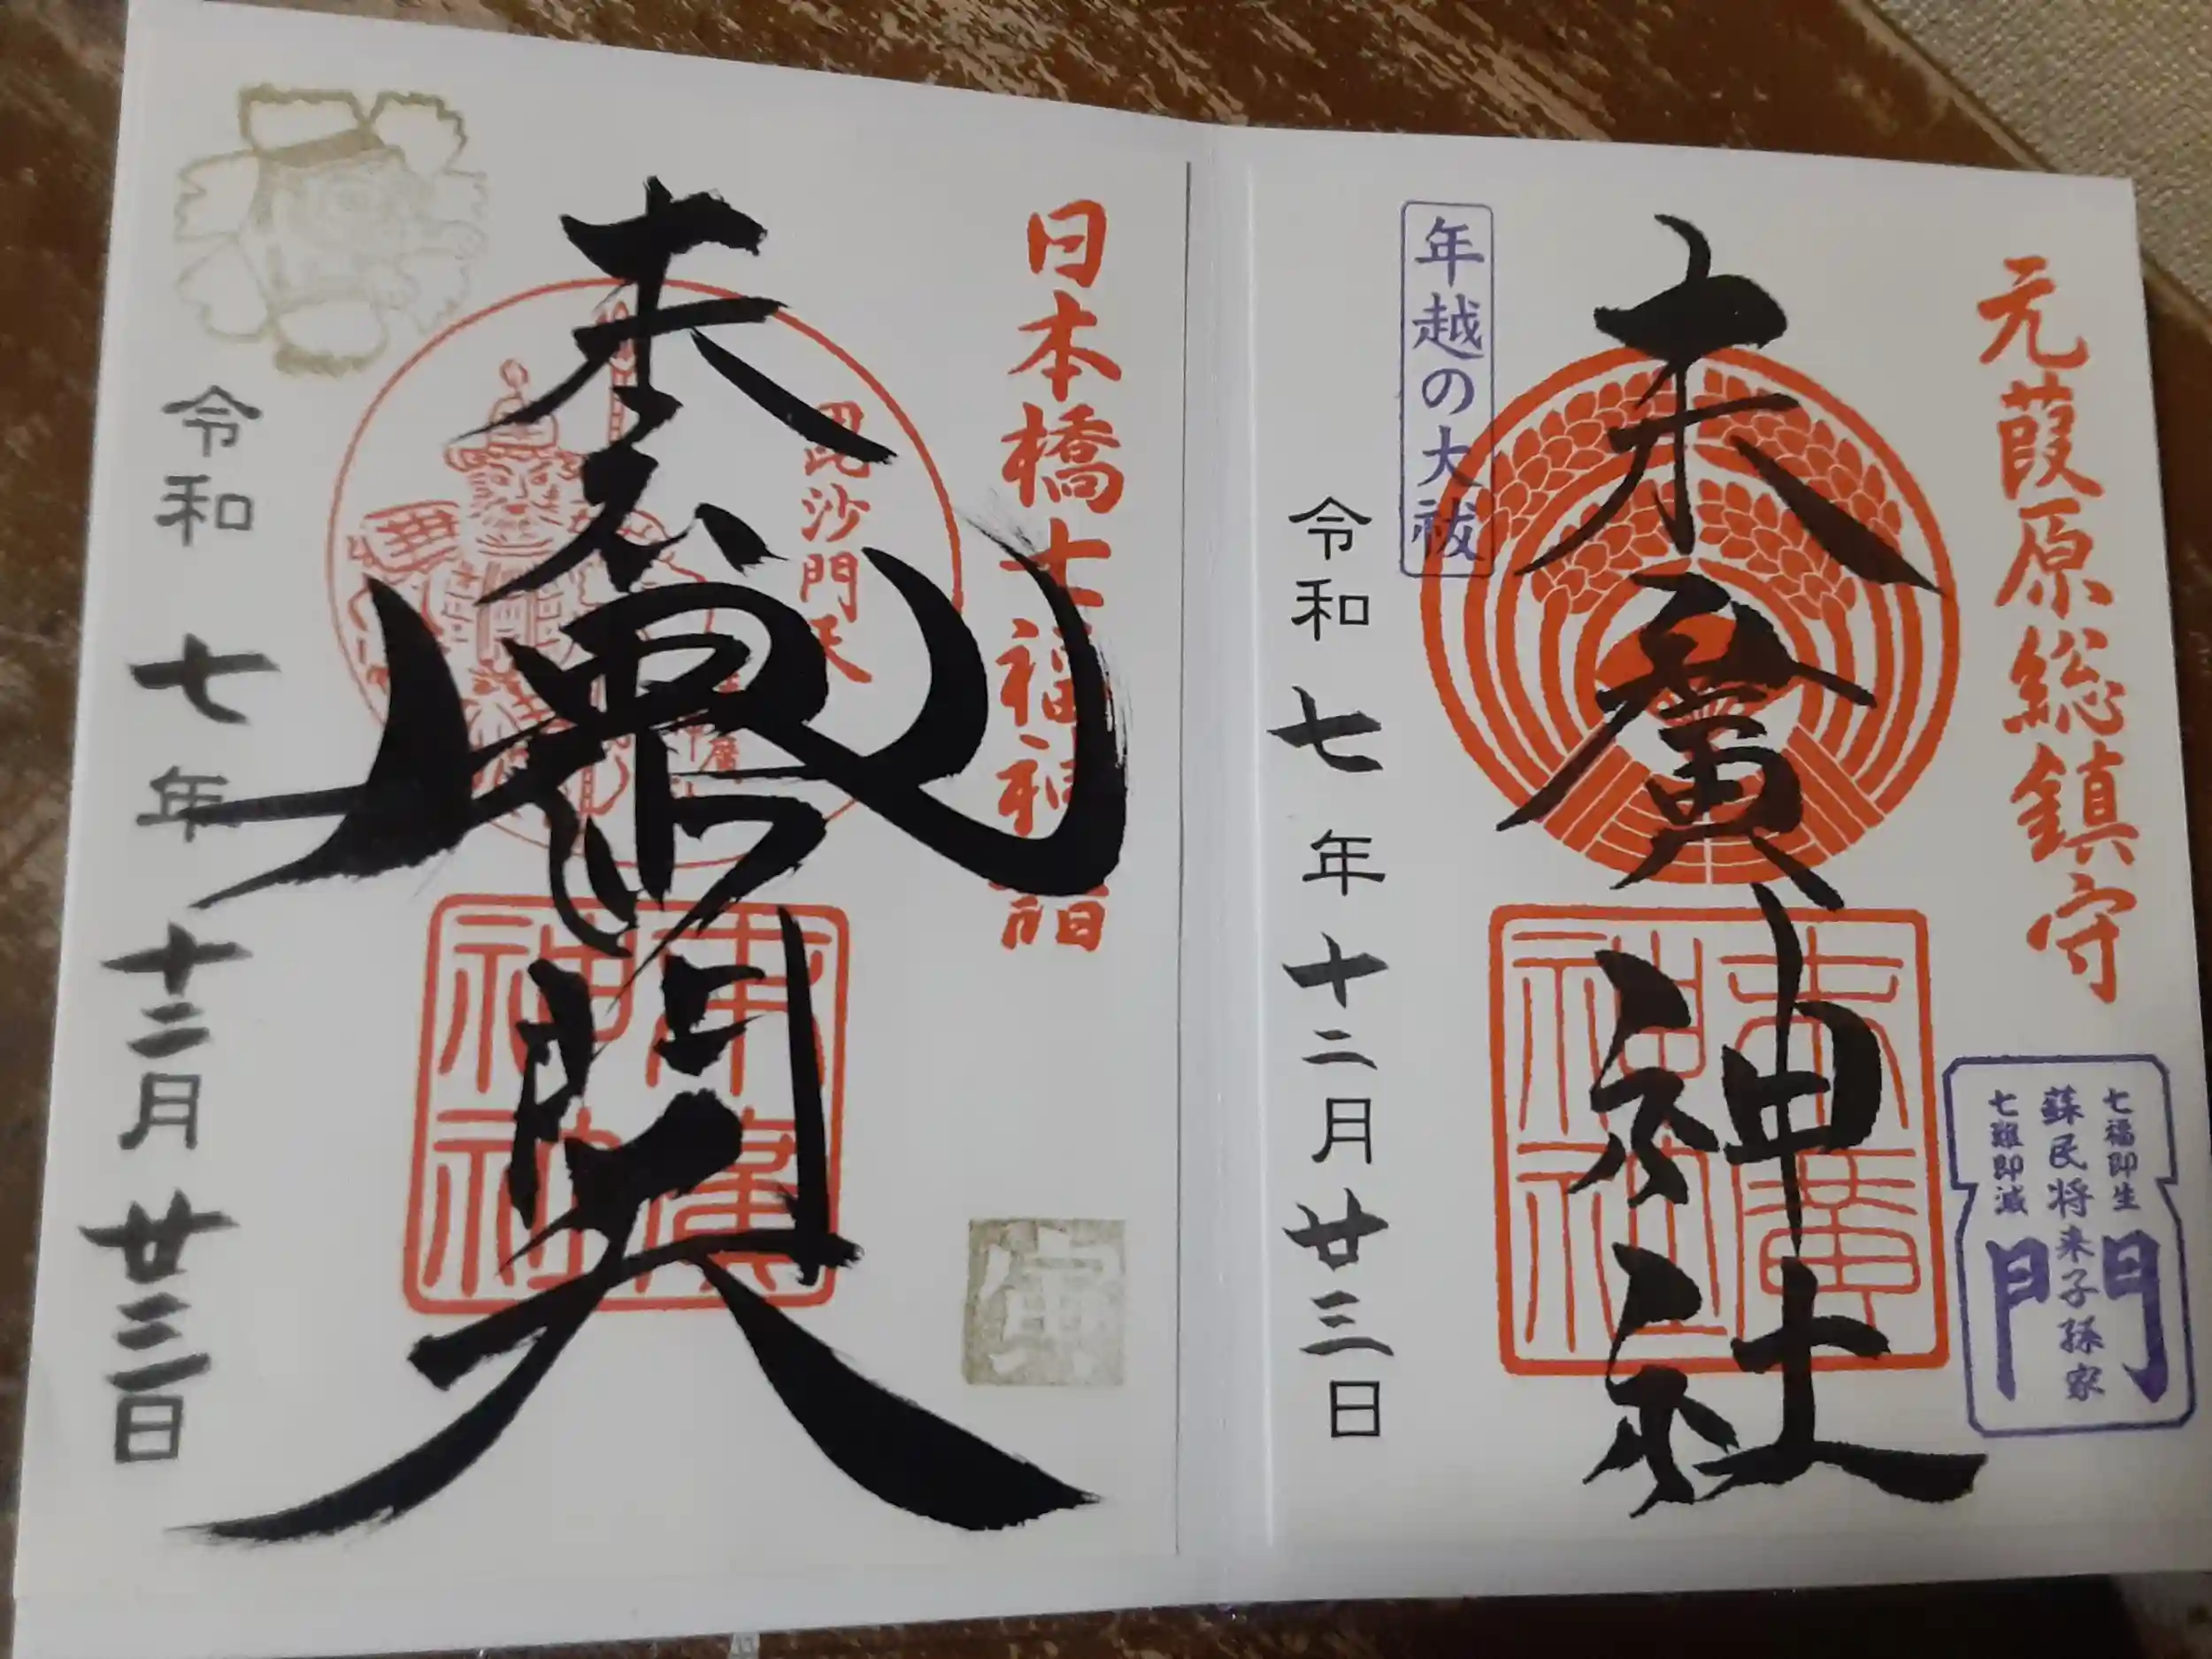 元葭原総鎮守
末廣神社
年越の大祓
令和七年十二月廿三日
七福即生
蘇民将来子孫家
七難即滅
門
末廣神社
日本橋七福神詣
毘沙門天
令和七年十二月廿三日
末廣神社
寅